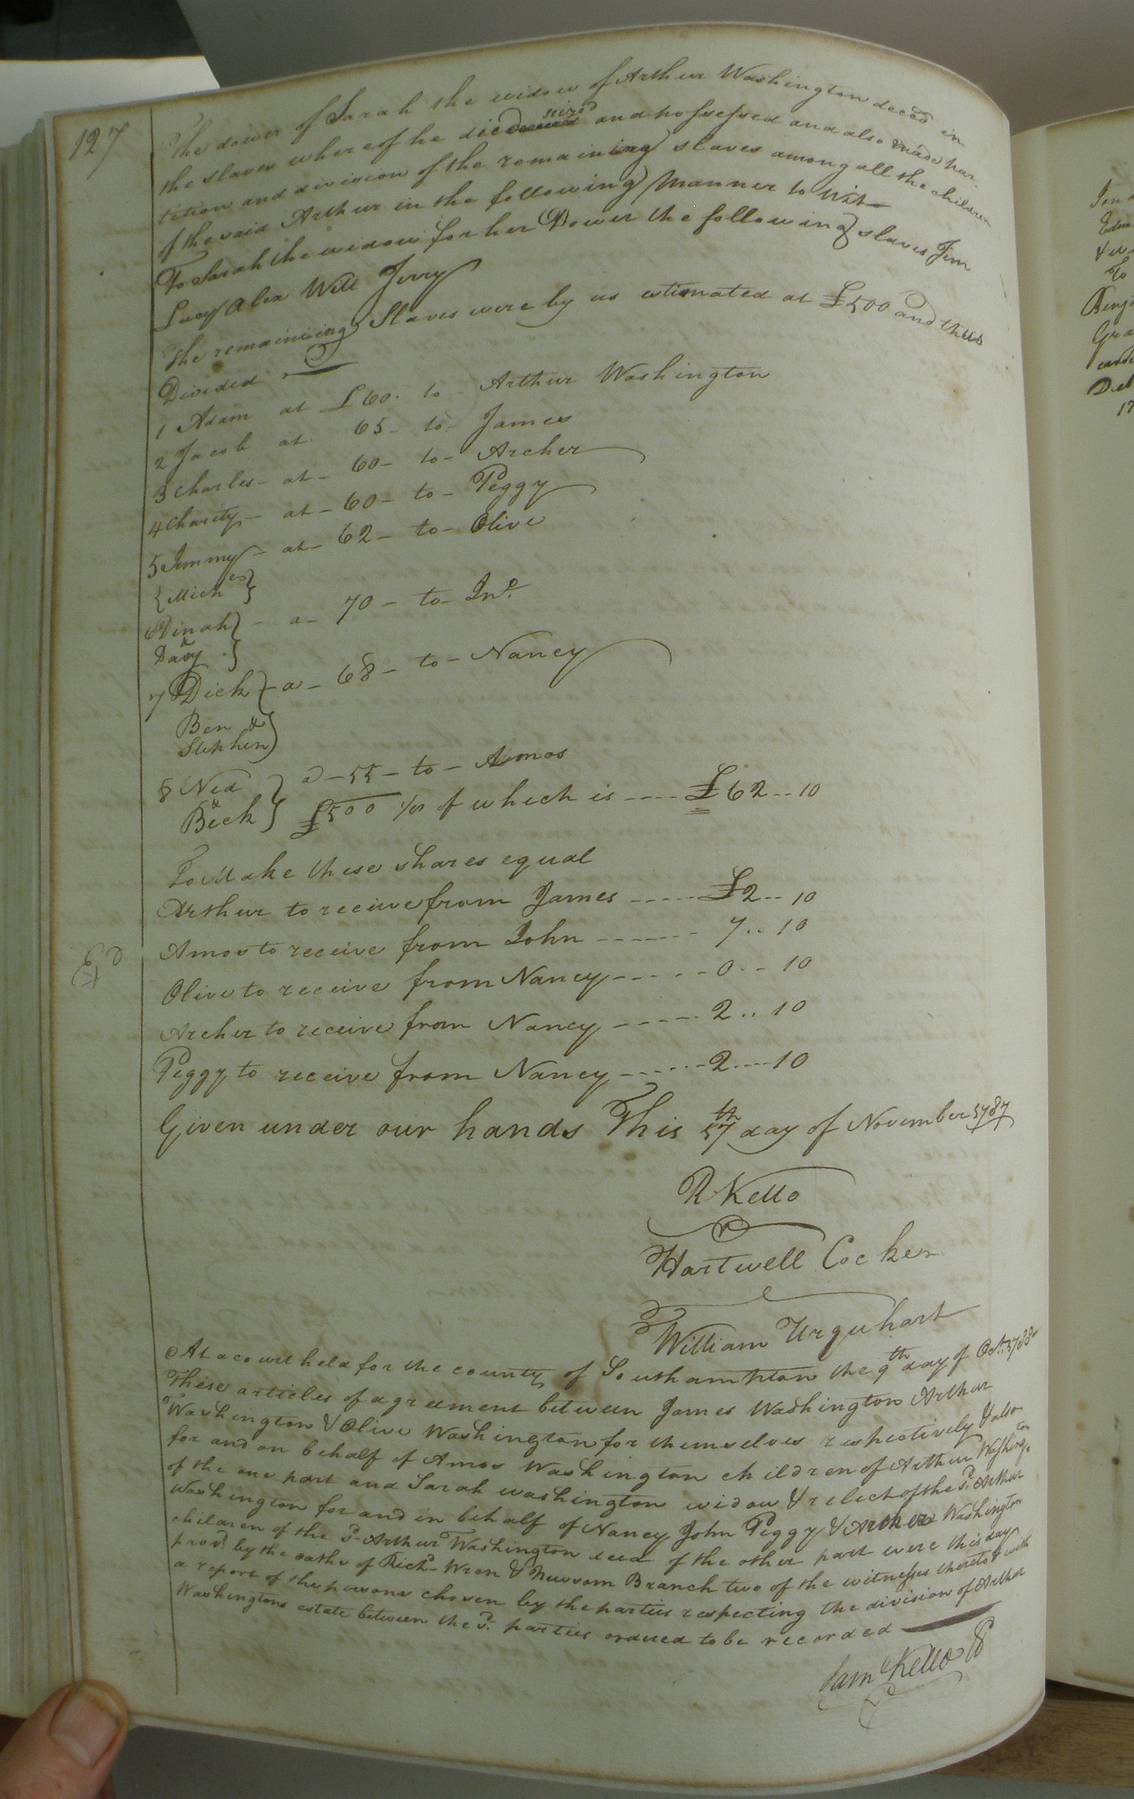 127
The dower of Sarah the widow of Arthur Washington deced in
the slaves whereof he died seized and possessed and also made par-
tition and division of the remaining slaves among all the children
of the said Arthur in the following manner to Wit
To Sarah the widow for her Dower the following slaves Jim
Lucy Alea Will Jerry
The remaining Slaves were by us estimated at £500 and thus
Divided
1 Adam at £60. to Arthur Washington
2 Jacob at 65 - to - James
3 Charles - at - 60 - to - Archer
4 Charity - at - 60 - to - Peggy
5 Jimmy - at - 62 - to - Olive
{Mich
6 Dinah} - a - 70 - to - Jno.
& Davy }
7 Dick } - a - 68 - to - Nancy
Ben &
Stephen }
8 Ned } a - 55 - to - Amos
& Beck } £500 ⅛ of which is ---- £62 .. 10
To Make these shares equal
Arthur to receive from James ----- £2 .. 10
Amos to receive from John ------ 7 .. 10
Ed
Olive to receive from Nancy ----- 0 .. 10
Archer to receive from Nancy ----- 2 .. 10
Peggy to receive from Nancy ------ 2 .... 10
Given under our hands This 17th day of November 1787
R Kello
Hartwell Cocker
William Urquhart
At a court held for the county of Southampton the 9th day of Oct. 1788
These articles of agreement between James Washington Arthur
Washington & Olive Washington for themselves respectively & also
for and on behalf of Amos Washington children of Arthur Washington
of the one part and Sarah Washington widow & relict of the sd. Arthur
Washington for and in behalf of Nancy John Peggy & Archer Washington
children of the sd. Arthur Washington decd of the other part were this day
provd. by the oaths of Richd. Wren & Newsom Branch two of the witnesses thereto & with
a report of the persons chosen by the parties respecting the division of Arthur
Washingtons estate between the sd. parties ordered to be recorded
Sam Kello